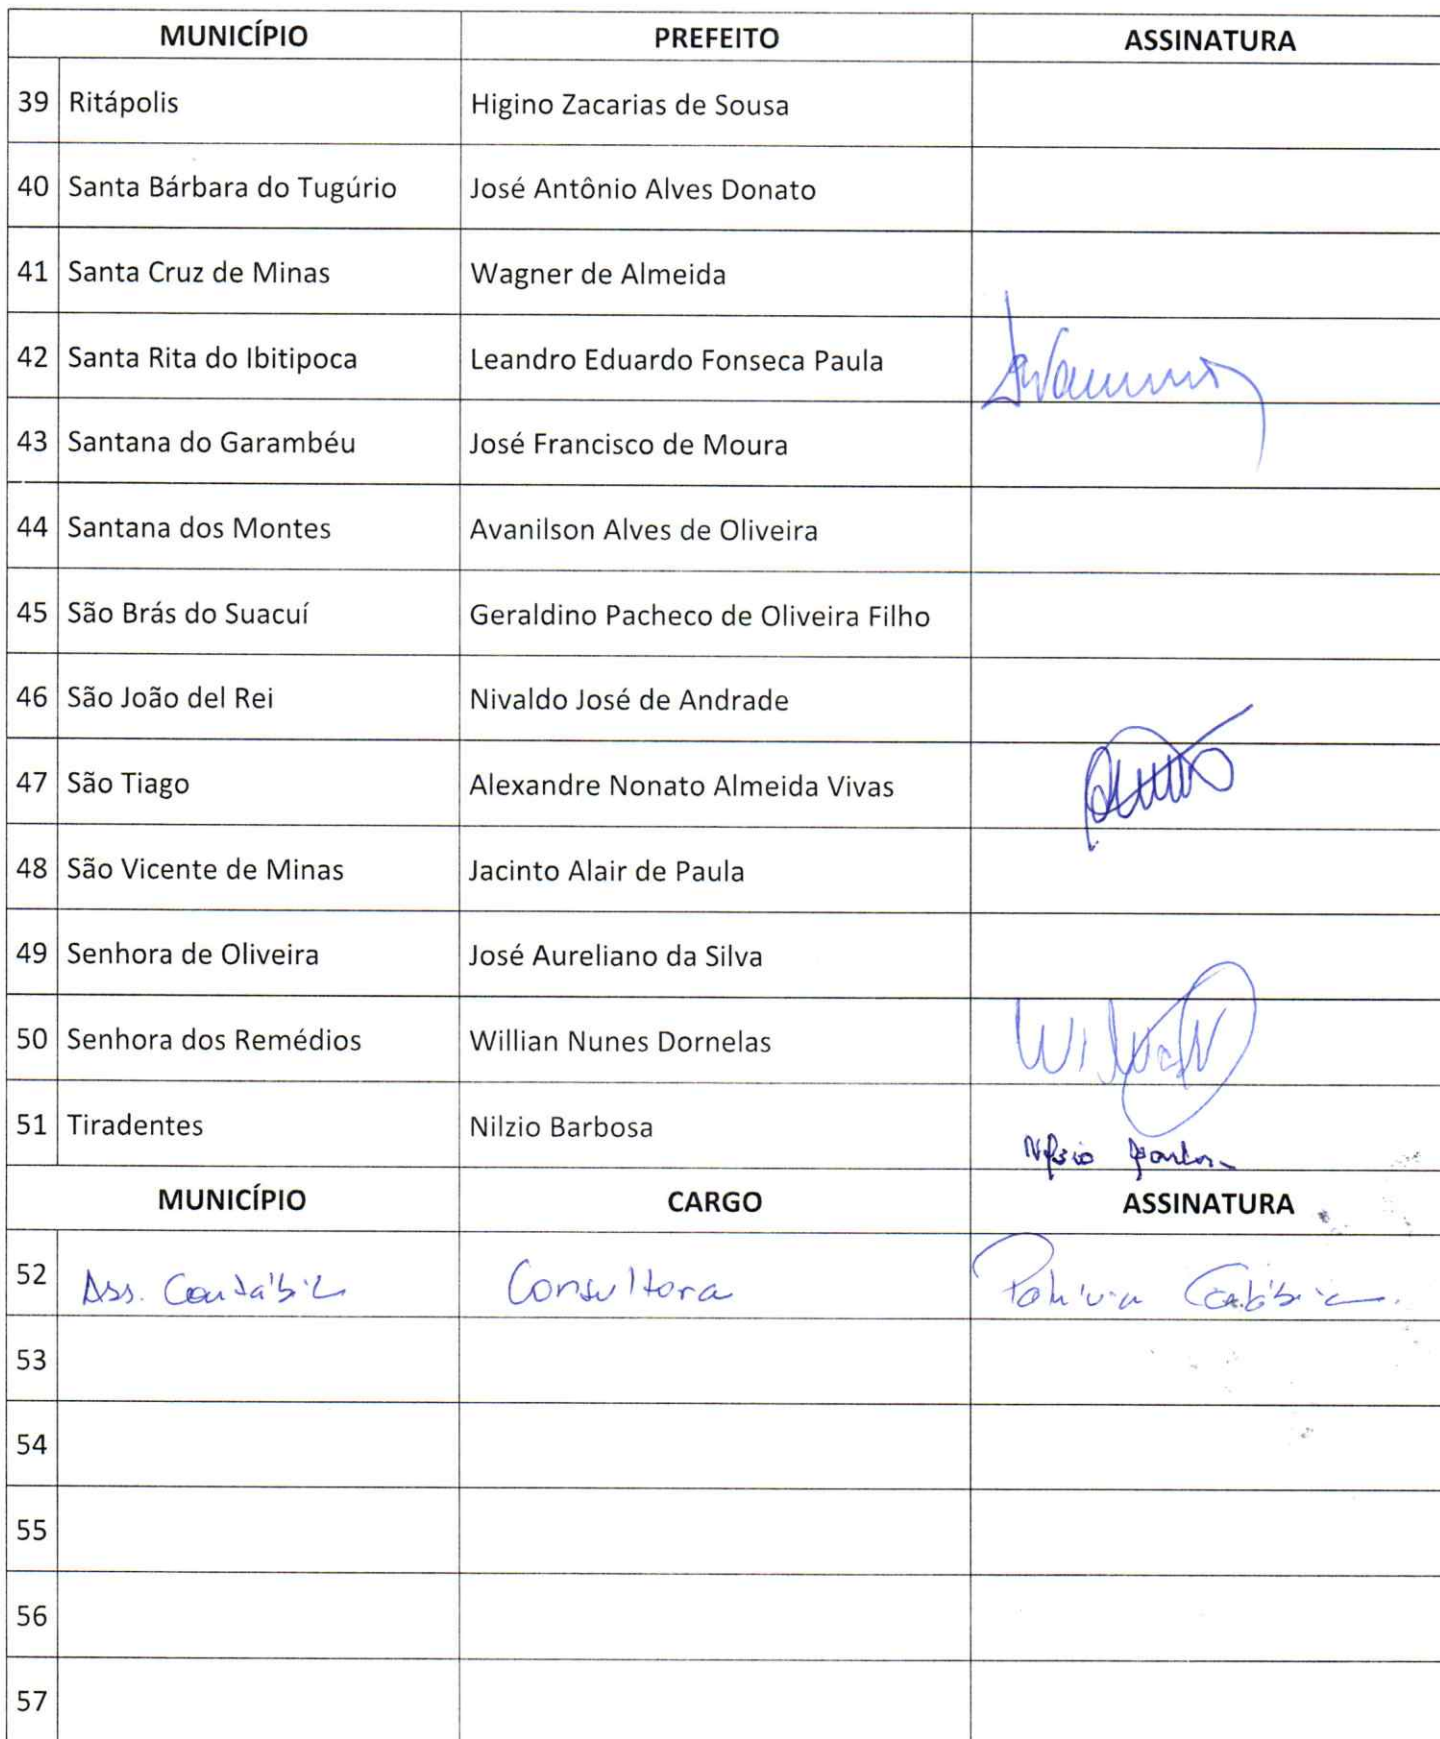 MUNICÍPIO PREFEITO ASSINATURA
39 Ritápolis Higino Zacarias de Sousa
40 Santa Bárbara do Tugúrio José Antônio Alves Donato
41 Santa Cruz de Minas Wagner de Almeida
42 Santa Rita do Ibitipoca Leandro Eduardo Fonseca Paula
43 Santana do Garambéu José Francisco de Moura
44 Santana dos Montes Avanilson Alves de Oliveira
45 São Brás do Suacuí Geraldino Pacheco de Oliveira Filho
46 São João del Rei Nivaldo José de Andrade
47 São Tiago Alexandre Nonato Almeida Vivas
48 São Vicente de Minas Jacinto Alair de Paula
49 Senhora de Oliveira José Aureliano da Silva
50 Senhora dos Remédios Willian Nunes Dornelas
51 Tiradentes Nilzio Barbosa
MUNICÍPIO CARGO ASSINATURA
52 Ass. Contábil Consultora
53
54
55
56
57